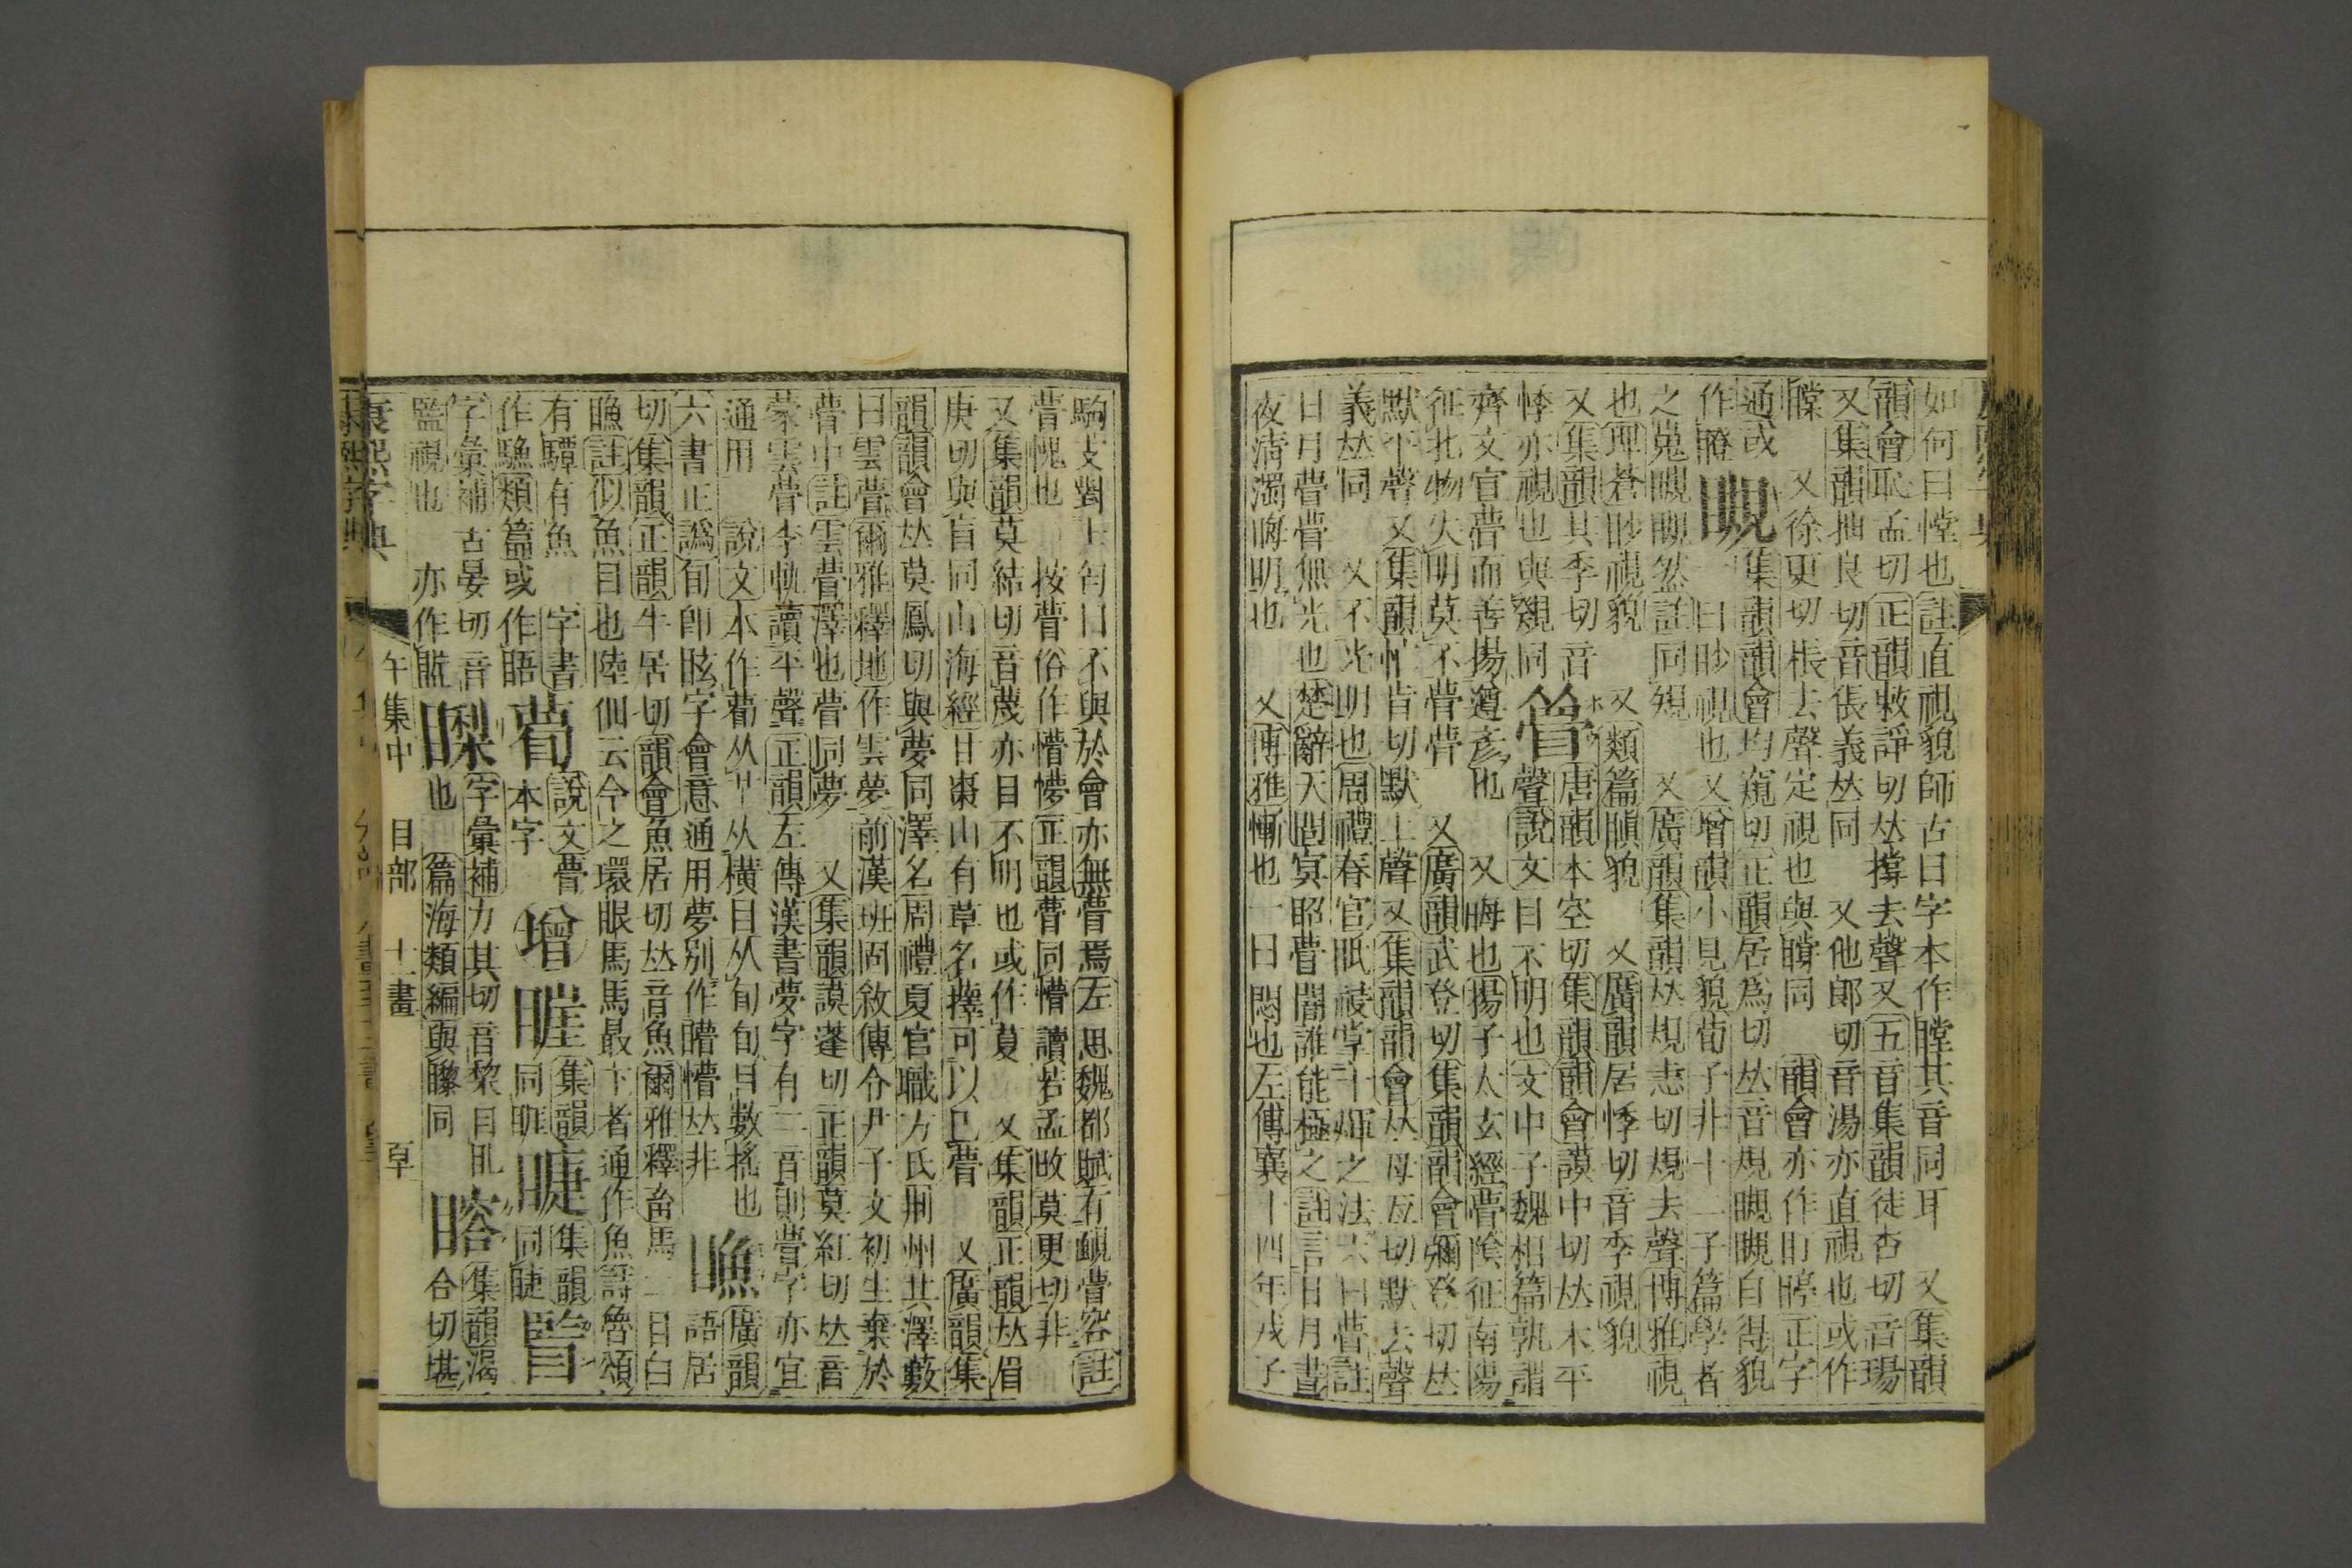 如何曰憆也註直視貌師古曰字本作瞠其音同耳 又集韻
韻會恥孟切正韻敕諍切𠀤撐去聲又五音集韻徒杏切音瑒
又集韻抽良切音倀義𠀤同 又他郎切音湯亦直視也或作
矘 又徐更切棖去聲定視也與瞕同 韻會亦作盯𥉸正字
通或
作瞪 瞡 集韻韻會均窺切正韻居爲切𠀤音規瞡瞡自得貌
一曰眇視也又增韻小見貌荀子非十二子篇學者
之嵬瞡瞡然註同規 又廣韻集韻𠀤規恚切規去聲博雅視
也埤蒼眇視貌 又類篇瞋貌 又廣韻居悸切音季視貌
又集韻其季切音
悸亦視也與䙆同 瞢 唐韻木空切集韻韻會謨中切𠀤木平
聲說文目不明也文中子魏相篇孰謂
齊文宣瞢而善揚遵彥也 又晦也揚子太玄經瞢陰征南陽
征北物失明莫不瞢瞢 又廣韻武登切集韻韻會彌登切𠀤
默平聲又集韻忙肯切默上聲又集韻韻會𠀤母亙切默去聲
義𠀤同 又不光明也周禮春官眡祲掌十煇之法六曰瞢註
日月瞢瞢無光也楚辭天問冥昭瞢闇誰能極之註言日月晝
夜淸濁晦明也 又博雅慚也一曰悶也左傳襄十四年戎子
駒支對士匄曰不與於會亦無瞢焉左思魏都賦有靦瞢容註
瞢愧也 按瞢俗作懵懜正韻瞢同懵讀若孟攺莫更切非
又集韻莫結切音蔑亦目不明也或作𥄕 又集韻正韻𠀤眉
庚切與盲同山海經甘棗山有草名蘀可以已瞢 又廣韻集
韻韻會𠀤莫鳳切與夢同澤名周禮夏官職方氏荆州其澤藪
曰雲瞢爾雅釋地作雲夢前漢班固敘傳令尹子文初生棄於
瞢中註雲瞢澤也瞢同夢 又集韻謨蓬切正韻莫紅切𠀤音
蒙雲瞢李軌讀平聲正韻左傳漢書夢字有二音則瞢字亦宜
通用 說文本作𦾳从𦫳从橫目从旬旬目數搖也
六書正譌旬卽眩字會意通用夢別作矒懵𠀤非 䱷 廣韻
語居
切集韻正韻牛居切韻會魚居切𠀤音魚爾雅釋畜馬二目白
䱷註似魚目也陸佃云今之環眼馬馬最下者通作魚詩魯頌
有驔有魚 字書
作䲣類篇或作䁩 𦾳 說文瞢
本字 增 睚 集韻
同眶 睫 集韻
同睫 瞖
字彙補古晏切音
監視也 亦作䀋 字彙補力其切音黎目眦
也 篇海類編與矋同 𥈭 集韻渴
合切堪
康熙字典 午集中 目部 十一畫